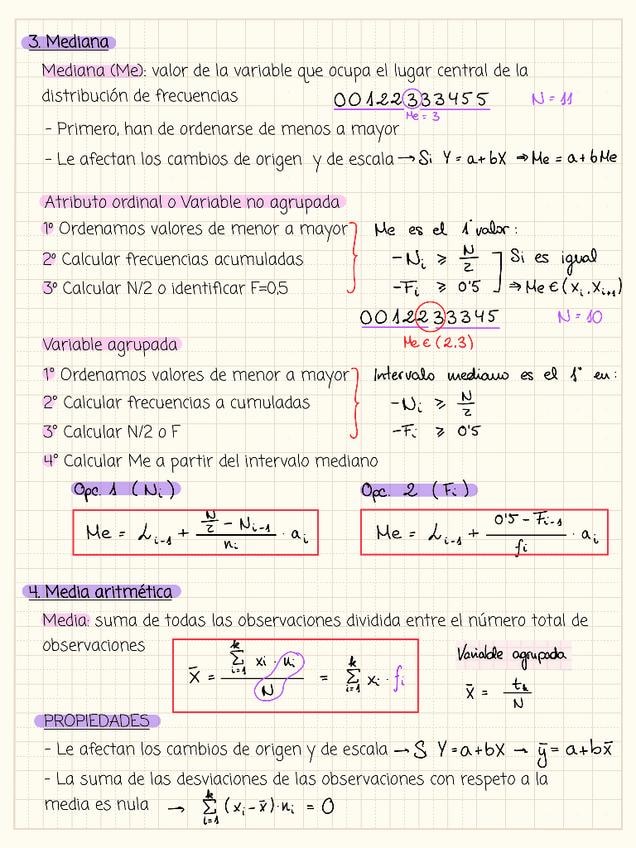 3. Mediana
Mediana (Me): valor de la variable que ocupa el lugar central de la
distribución de frecuencias 00122333455 N = 11
Me = 3
- Primero, han de ordenarse de menos a mayor
- Le afectan los cambios de origen y de escala → Si Y = a + bX ⇒ Me = a + bMe
Atributo ordinal o Variable no agrupada
1º Ordenamos valores de menor a mayor Me es el 1º valor:
2º Calcular frecuencias acumuladas - Ni ≥ N/2 Si es igual
3º Calcular N/2 o identificar F=0,5 - Fi ≥ 0'5 ⇒ Me ∈ (Xi, Xi+1)
0012233345 N = 10
Me ∈ (2.3)
Variable agrupada
1º Ordenamos valores de menor a mayor Intervalo mediano es el 1º en:
2º Calcular frecuencias a cumuladas - Ni ≥ N/2
3º Calcular N/2 o F - Fi ≥ 0'5
4º Calcular Me a partir del intervalo mediano
Opc. 1 (Ni) Opc. 2 (Fi)
Me = Li-1 + (N/2 - Ni-1)/ni · ai Me = Li-1 + (0'5 - Fi-1)/fi · ai
4. Media aritmética
Media: suma de todas las observaciones dividida entre el número total de
observaciones
x̄ = (∑ i=1 k xi · ni)/N = ∑ i=1 k xi · fi
Variable agrupada
x̄ = tk/N
PROPIEDADES
- Le afectan los cambios de origen y de escala → S Y = a + bX → ȳ = a + bx̄
- La suma de las desviaciones de las observaciones con respeto a la
media es nula → ∑ i=1 k (xi - x̄) · ni = 0